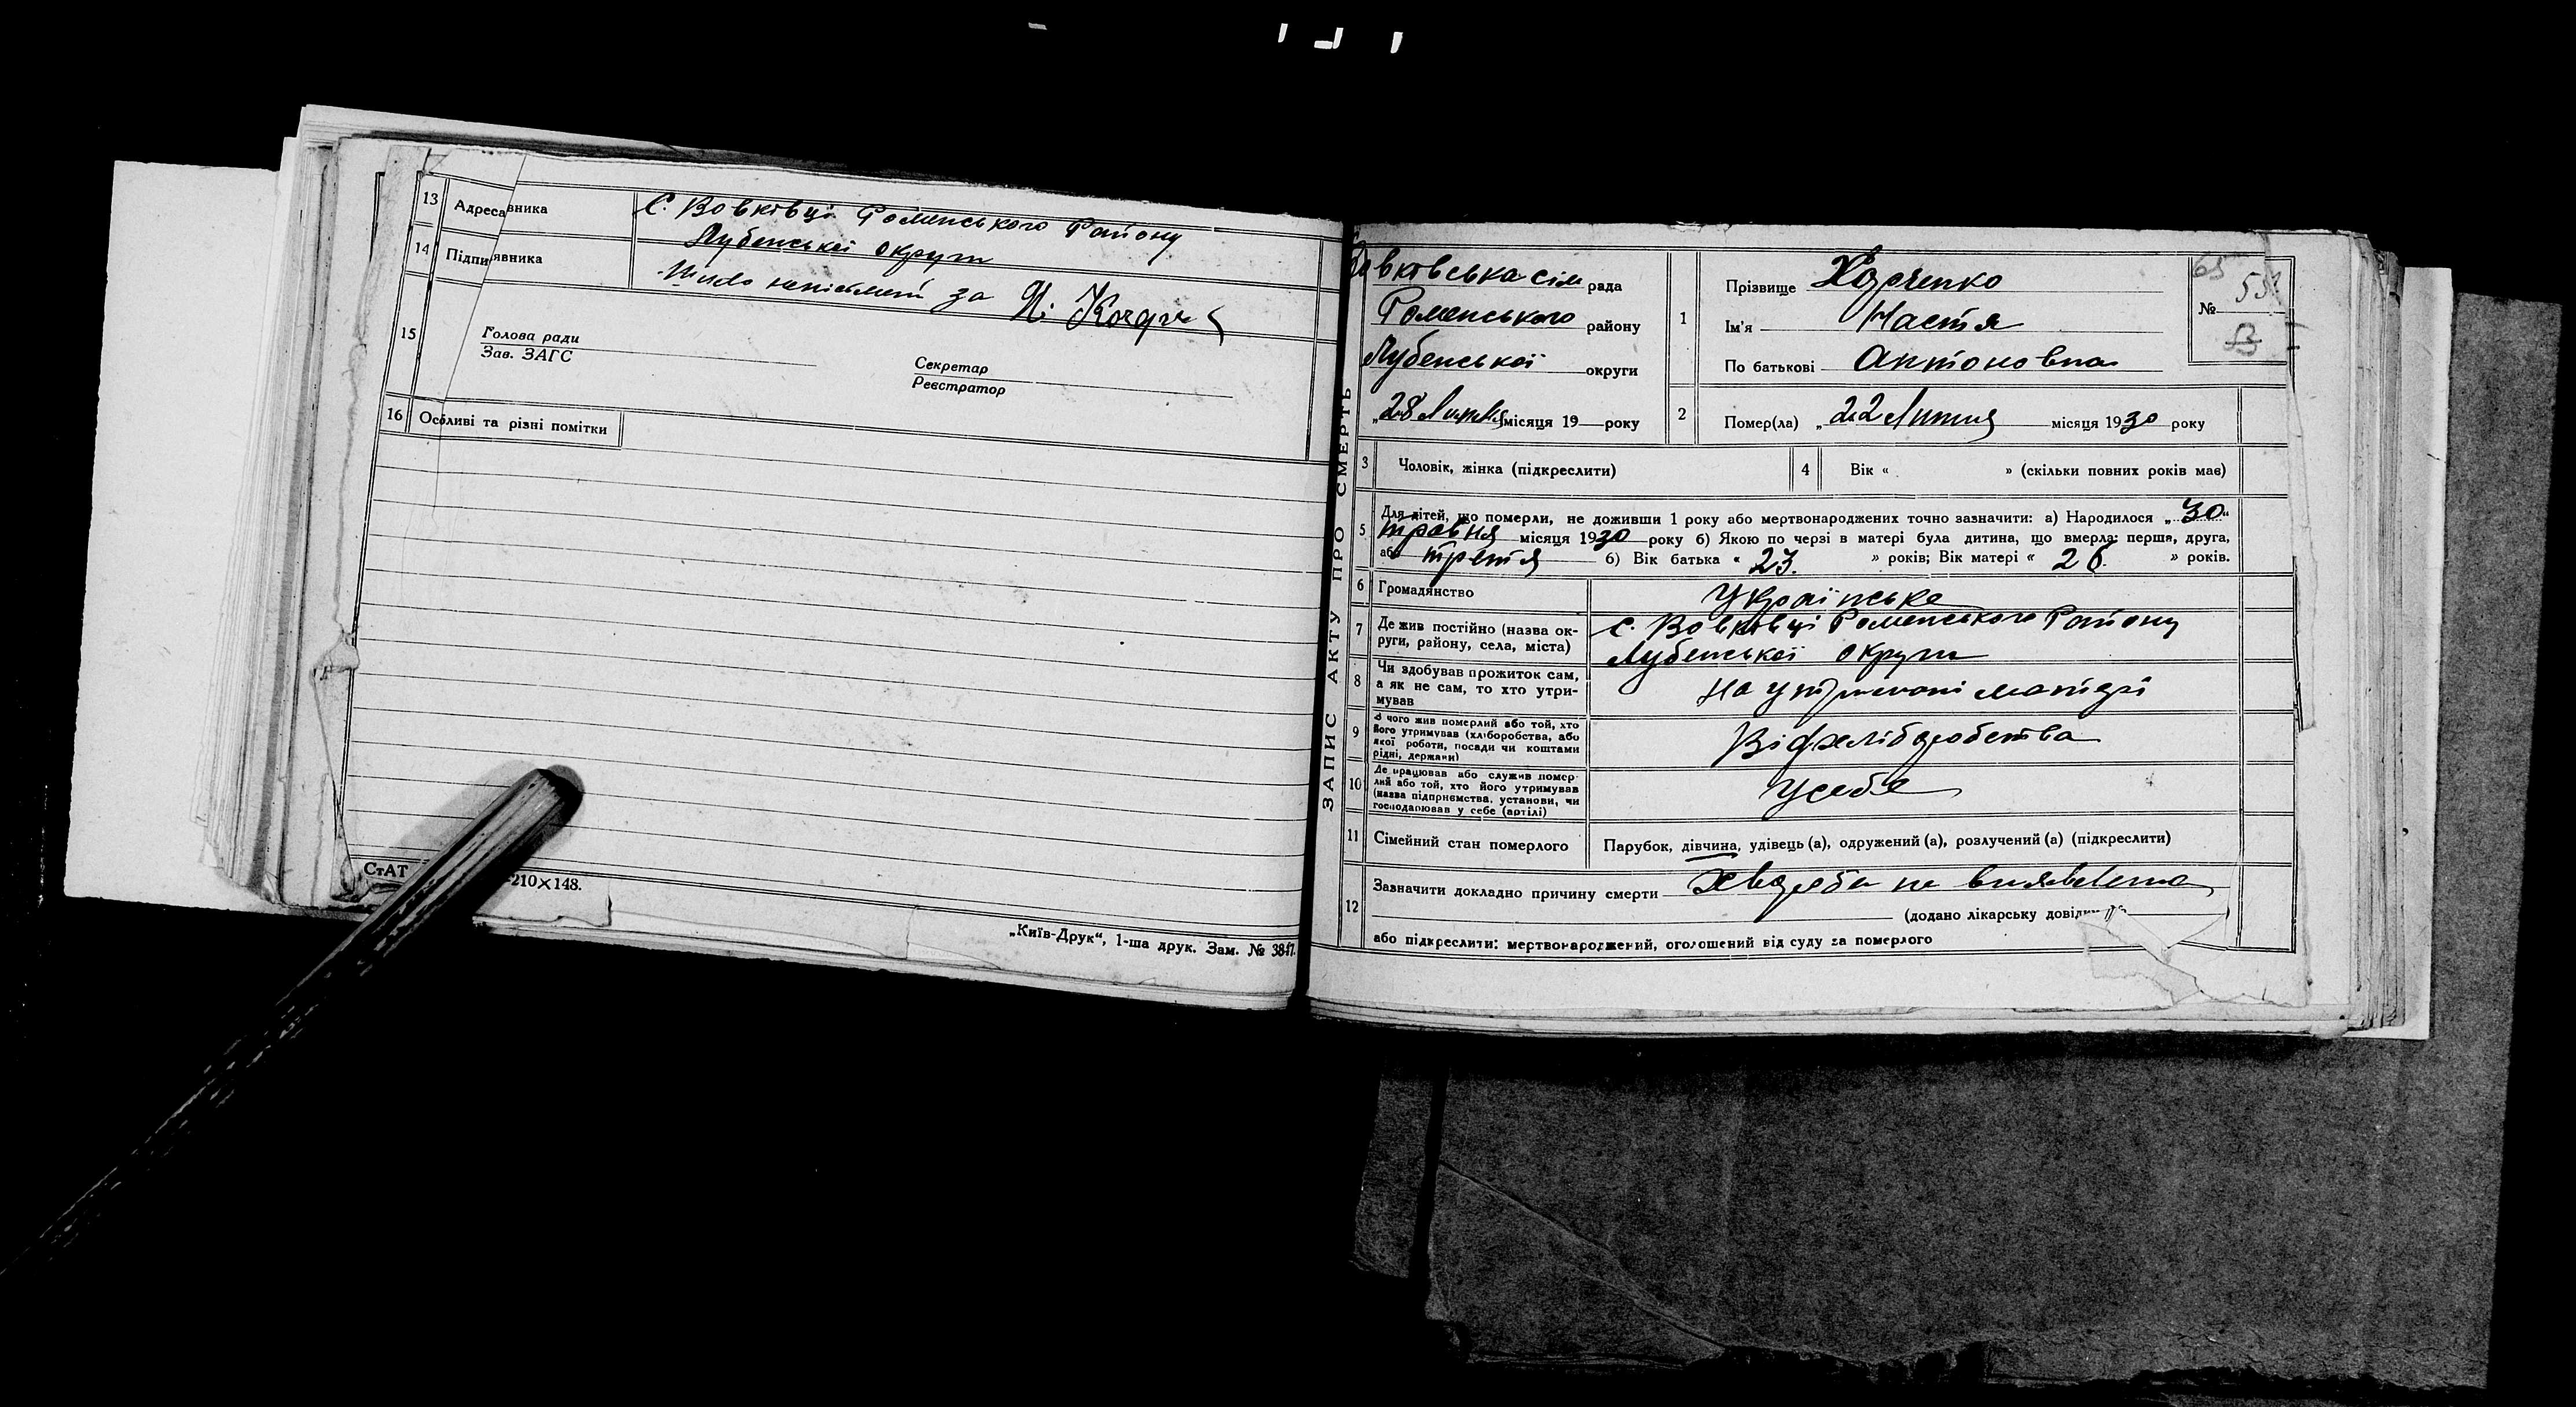 13 Адреса вника С. Вовківці Роменського Району
Лубенської округи
14 Підпи явника за
15 Голова ради
Зав. ЗАГС
Секретар
Реєстратор
16 Особливі та різні помітки
СтАТ 210×148.
„Київ-Друк“, 1-ша друк. Зам. № 3847.
ЗАПИС АКТУ ПРО СМЕРТЬ
Вовківська сіл рада
Роменського району
Лубенської округи
„28 Липня місяця 19 року
1 Прізвище
Ім'я Настя
По батькові Антоновна
65
№ 55
13
2 Помер(ла) „22 Липня місяця 1930 року
3 Чоловік, жінка (підкреслити)
4 Вік « » (скільки повних років має)
5 Для дітей, що померли, не доживши 1 року або мертвонароджених точно зазначити: а) Народилося „30“
травня місяця 1930 року б) Якою по черзі в матері була дитина, що вмерла: перша, друга,
або третя б) Вік батька « 23. » років; Вік матері « 26. » років.
6 Громадянство Українське
7 Де жив постійно (назва ок-
руги, району, села, міста)
с. Вовківці Роменського Району
Лубенської округи
8 Чи здобував прожиток сам,
а як не сам, то хто утри-
мував
На утриманні матері
9 З чого жив померлий або той, хто
його утримував (хліборобства, або
якої роботи, посади чи коштами
рідні, держави)
Від хліборобства
10 Де працював або служив помер-
лий або той, хто його утримував
(назва підприємства, установи, чи
господарював у себе (артілі)
У себе
11 Сімейний стан померлого Парубок, дівчина, удівець (а), одружений (а), розлучений (а) (підкреслити)
12 Зазначити докладно причину смерти Хвороба не виявлена
(додано лікарську довідк
або підкреслити: мертвонароджений, оголошений від суду за померлого